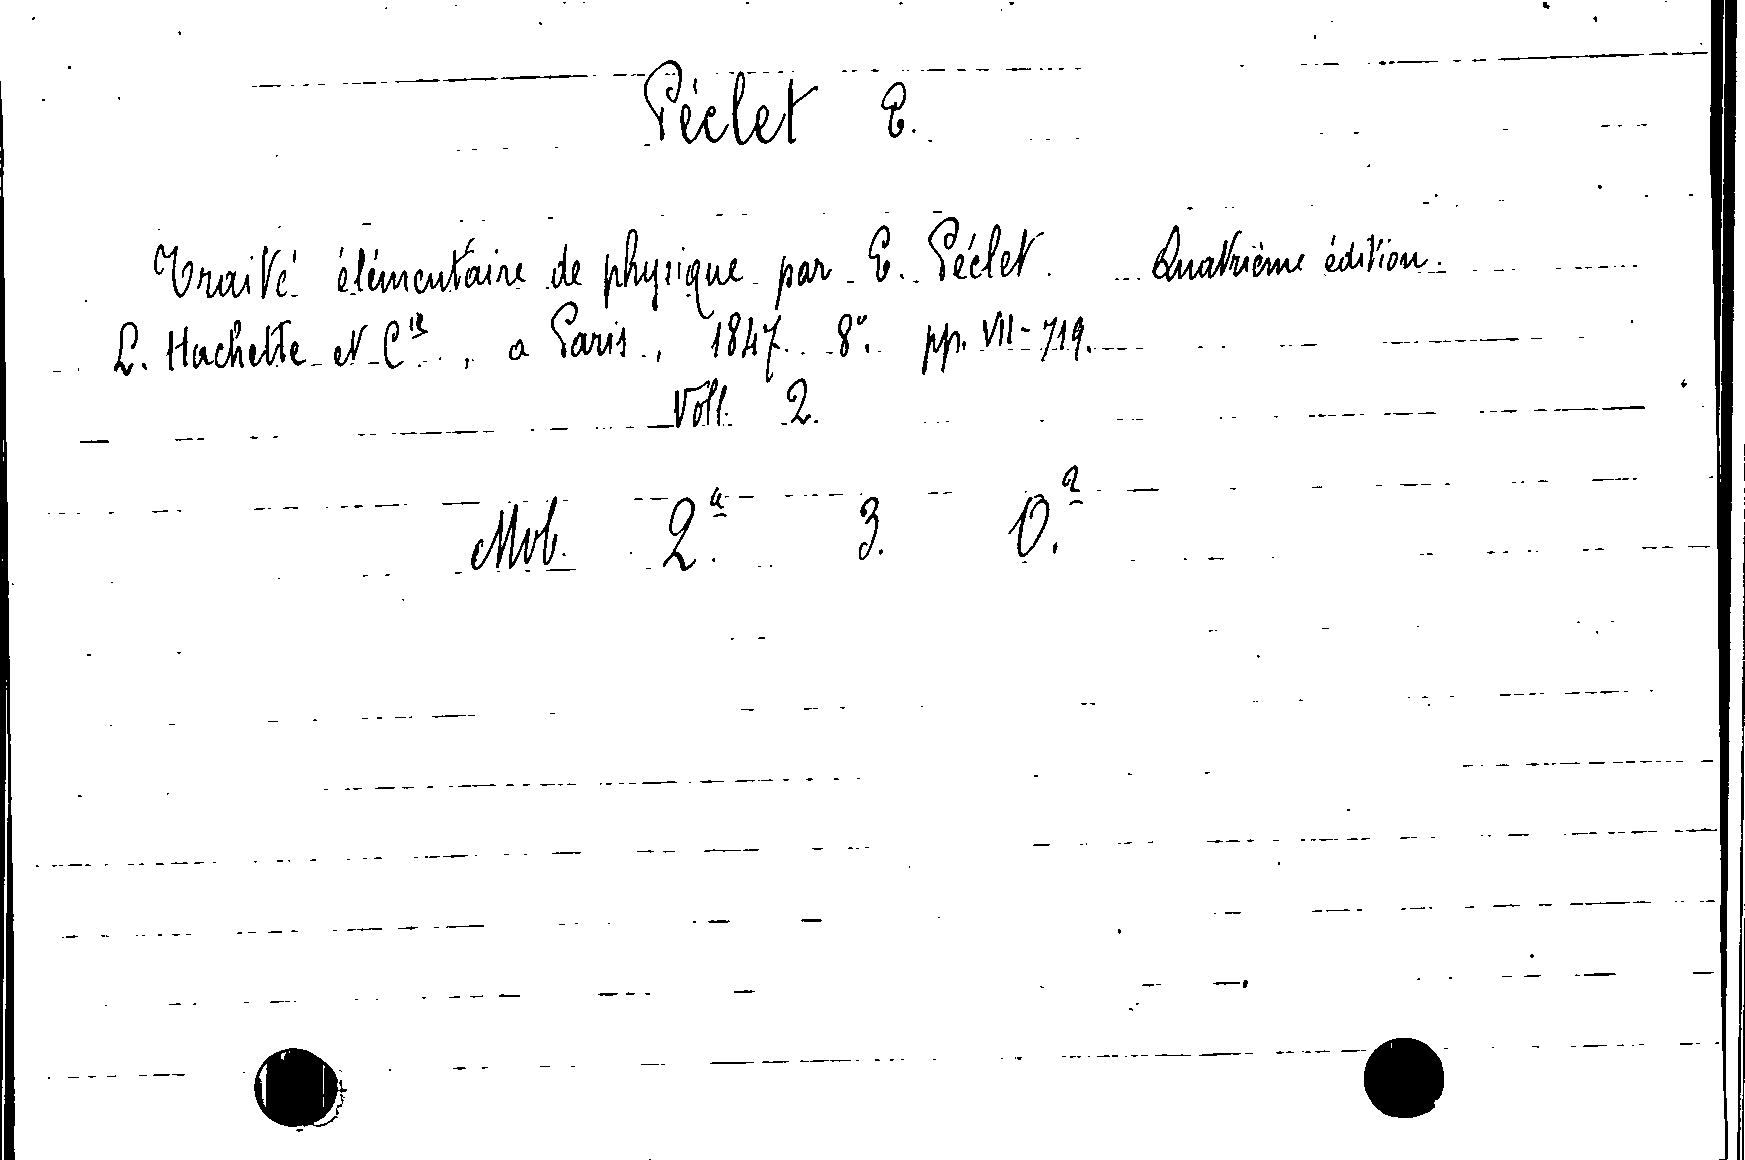 Péclet E.
Traité élémentaire de physique par E. Péclet. Quatrième édition.
L. Hachette et C.ie, a Paris, 1847. 8°. pp. VII-719.
Voll. 2.
Mob. 2.a 3. O.a